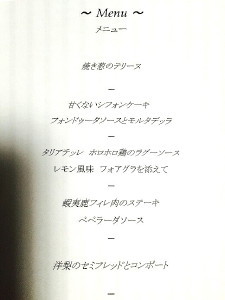 ～ Menu ～
メニュー
焼き葱のテリーヌ
ー
甘くないシフォンケーキ
フォンドゥータソースとモルタデッラ
ー
タリアテッレ ホロホロ鶏のラグーソース
レモン風味 フォアグラを添えて
ー
蝦夷鹿フィレ肉のステーキ
ペペラーダソース
ー
洋梨のセミフレッドとコンポート
ー